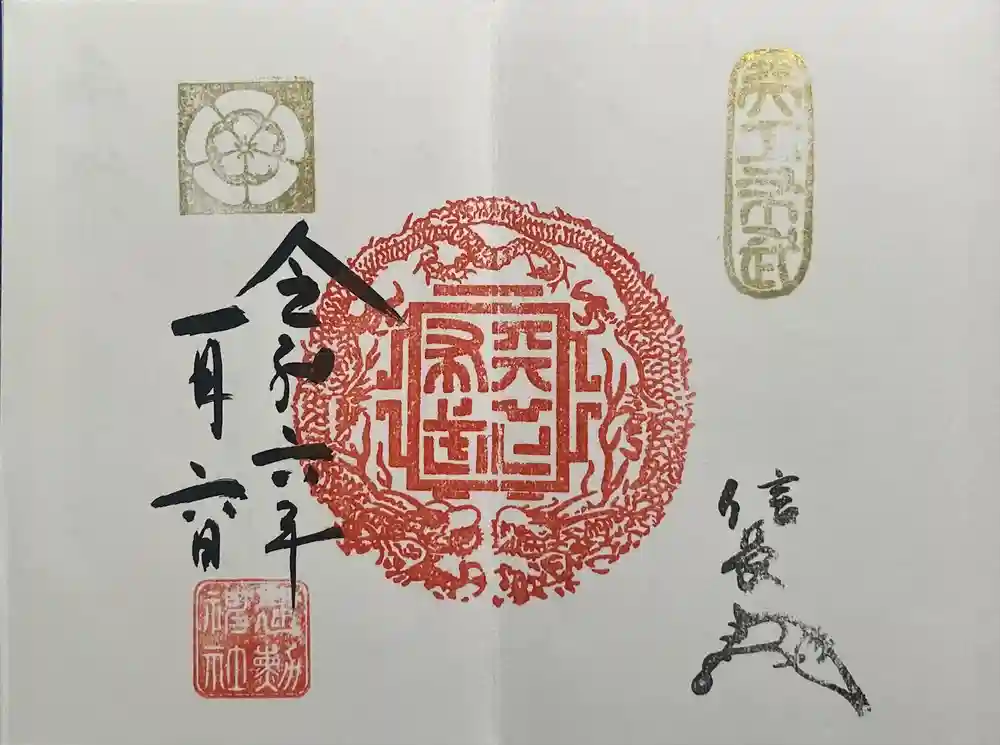 天下布武
信長
天下
布武
令和六年
一月六日
建勲
神社